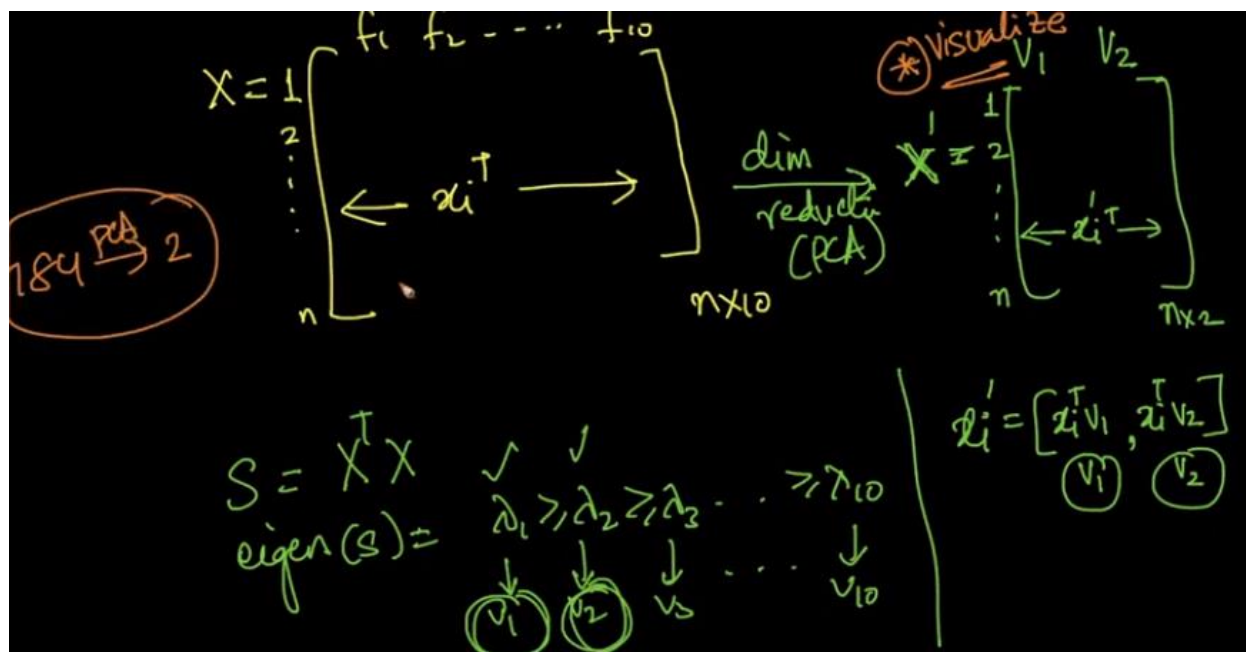 f1 f2 - - - - - f10
X = 1
2
⋮
n
← xiᵀ →
n×10
784 PCA → 2
dim
reductn
(PCA)
* visualize
V1 V2
X' = 1
2
⋮
n
← xi'ᵀ →
n×2
S = XᵀX
✓ ✓
eigen(S) = λ1 ≥ λ2 ≥ λ3 . . . ≥ λ10
↓ ↓ ↓ . . . ↓
v1 v2 v3 v10
xi' = [xiᵀv1, xiᵀv2]
V1' V2